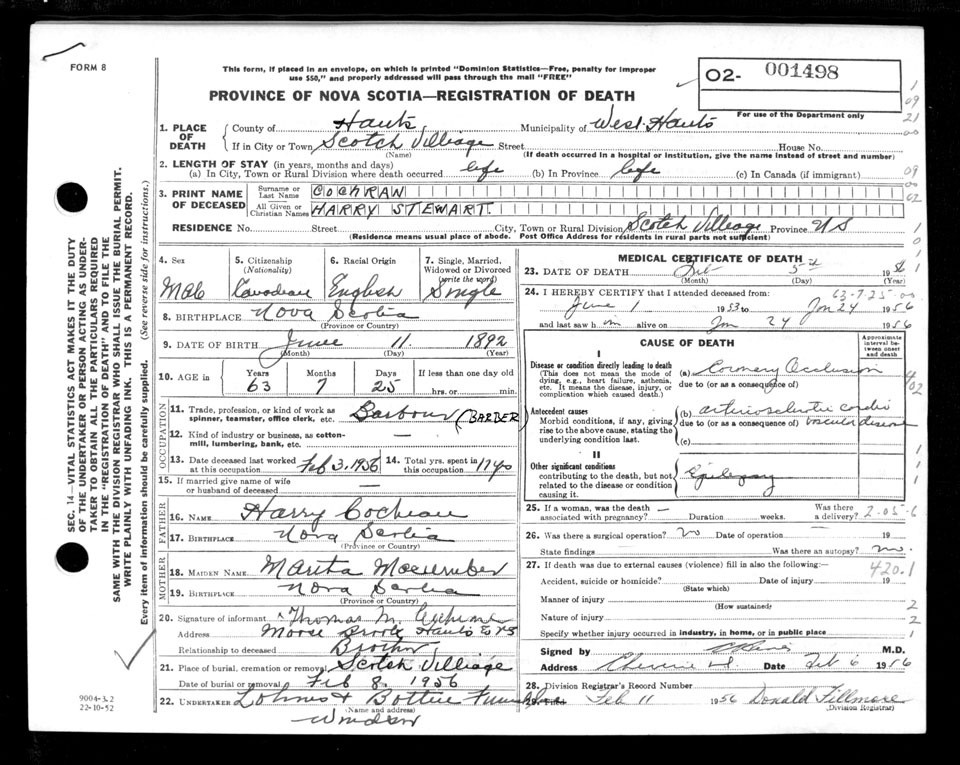 FORM 8
This form, if placed in an envelope, on which is printed "Dominion Statistics—Free, penalty for improper
use $50," and properly addressed will pass through the mail "FREE"
PROVINCE OF NOVA SCOTIA—REGISTRATION OF DEATH
O2- 001498
For use of the Department only
1. PLACE OF DEATH
County of Hants Municipality of West Hants
If in City or Town Scotch Villiage Street House No.
(Name) (If death occurred in a hospital or institution, give the name instead of street and number)
2. LENGTH OF STAY (in years, months and days)
(a) In City, Town or Rural Division where death occurred life (b) In Province life (c) In Canada (if immigrant)
3. PRINT NAME OF DECEASED
Surname or Last Name COCHRAN
All Given or Christian Names HARRY STEWART
RESIDENCE No. Street City, Town or Rural Division Scotch Villeage Province NS
(Residence means usual place of abode. Post Office Address for residents in rural parts not sufficient)
4. Sex 5. Citizenship (Nationality) 6. Racial Origin 7. Single, Married, Widowed or Divorced (write the word)
Male Canadian English Single
8. BIRTHPLACE Nova Scotia
(Province or Country)
9. DATE OF BIRTH June 11 1892
(Month) (Day) (Year)
10. AGE in Years Months Days If less than one day old
63 7 25 hrs. or min.
OCCUPATION
11. Trade, profession, or kind of work as spinner, teamster, office clerk, etc. Barbour (BARBER)
12. Kind of industry or business, as cotton-mill, lumbering, bank, etc.
13. Date deceased last worked at this occupation Feb 3, 1956 14. Total yrs. spent in this occupation
15. If married give name of wife or husband of deceased —
FATHER
16. NAME Harry Cochran
17. BIRTHPLACE Nova Scotia
(Province or Country)
MOTHER
18. MAIDEN NAME
19. BIRTHPLACE Nova Scotia
(Province or Country)
20. Signature of informant Thomas M. Cochran
Address Hants Co NS
Relationship to deceased Brother
21. Place of burial, cremation or removal Scotch Villiage
Date of burial or removal Feb 8, 1956
22. UNDERTAKER Lohnes & Funeral
(Name and address)
Windsor
MEDICAL CERTIFICATE OF DEATH
23. DATE OF DEATH Feb 5th 1956
(Month) (Day) (Year)
63-7-25
24. I HEREBY CERTIFY that I attended deceased from:
June 1 1953 to Jan 24 1956
and last saw him alive on Jan 24 1956
CAUSE OF DEATH
Approximate interval between onset and death
I
Disease or condition directly leading to death (a) Coronary Occlusion
(This does not mean the mode of dying, e.g., heart failure, asthenia, etc. It means the disease, injury, or complication which caused death.)
due to (or as a consequence of)
Antecedent causes (b) arteriosclerotic cardio
Morbid conditions, if any, giving rise to the above cause, stating the underlying condition last.
due to (or as a consequence of) vascular disease
(c)
II
Other significant conditions
contributing to the death, but not related to the disease or condition causing it.
Epilepsy
25. If a woman, was the death associated with pregnancy? — Duration weeks. Was there a delivery?
2-05-6
26. Was there a surgical operation? No Date of operation 19
State findings Was there an autopsy? no.
27. If death was due to external causes (violence) fill in also the following:—
420.1
Accident, suicide or homicide? Date of injury 19
(State which)
Manner of injury
(How sustained)
Nature of injury
Specify whether injury occurred in industry, in home, or in public place
Signed by M.D.
Address Date Feb 6 1956
28. Division Registrar's Record Number
Feb 11 1956 Donald Fillmore
(Division Registrar)
SEC. 14—VITAL STATISTICS ACT MAKES IT THE DUTY
OF THE UNDERTAKER OR PERSON ACTING AS UNDER-
TAKER TO OBTAIN ALL THE PARTICULARS REQUIRED
IN THE "REGISTRATION OF DEATH" AND TO FILE THE
SAME WITH THE DIVISION REGISTRAR WHO SHALL ISSUE THE BURIAL PERMIT.
WRITE PLAINLY WITH UNFADING INK. THIS IS A PERMANENT RECORD.
Every item of information should be carefully supplied. (See reverse side for instructions.)
9004-3.2
22-10-52